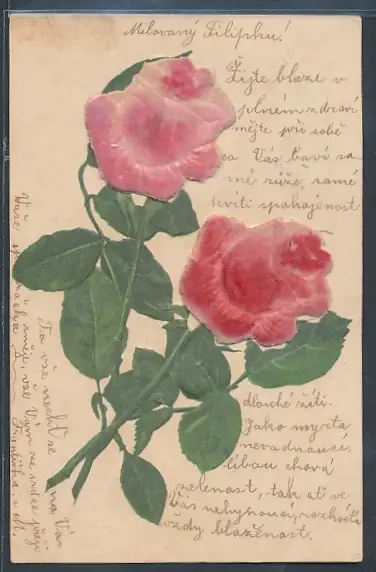 Milovaný Filípku!
Žijte blaze v
plném zdraví
mějte při sobě
co Vás baví sa-
mé růže, samé
kvítí spokojenost
dlouhé žití.
Jako myrta
nevadnoucí,
libou chová
zelenost, tak ať ve
Vás nehynoucí, rozkvétá
vždy blaženost.
To vše nechť se na Vás
směje, vše Vám ze srdce přeje
Vaše
Františka